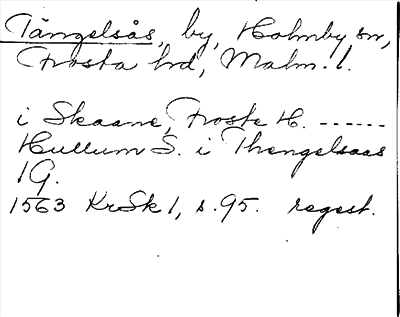 Tängelsås, by, Holmby sn,
Frosta hd, Malm. l.
i Skaane, Froste H. ------
Hullum S. i Thengelsaas
1 G.
1563 KrSk 1, s. 95. regest.